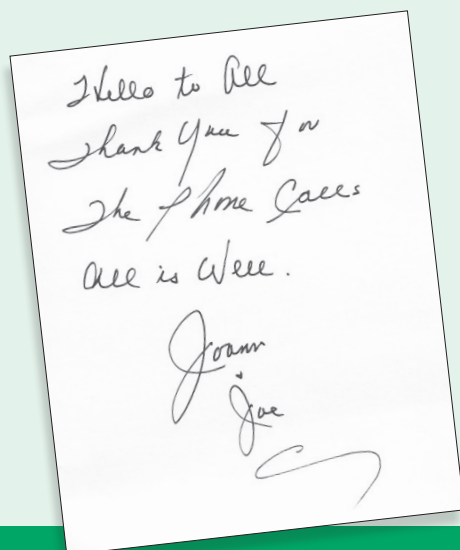 Hello to All
Thank You for
The Phone Calls
All is Well.
Joann
Joe